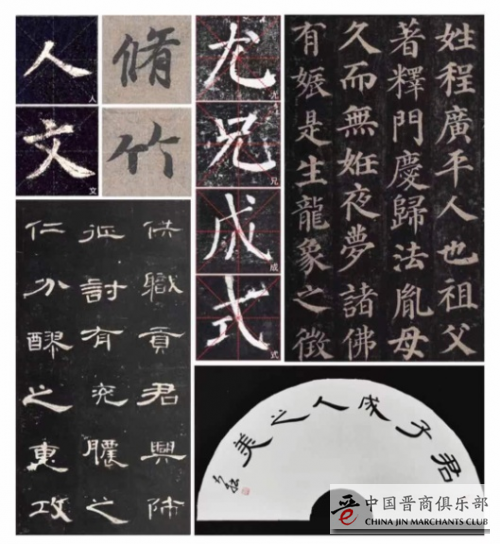 人
人
文
文
脩
竹
尤
尤
兄
兄
成
成
式
式
姓程廣平人也祖父
著釋門慶歸法胤母
久而無姙夜夢諸佛
有娠是生龍象之徵
供職貢君興師
征討有兖膿之
仁分醪之惠攻
君子成人之美
中国晋商俱乐部
CHINA JIN MARCHANTS CLUB